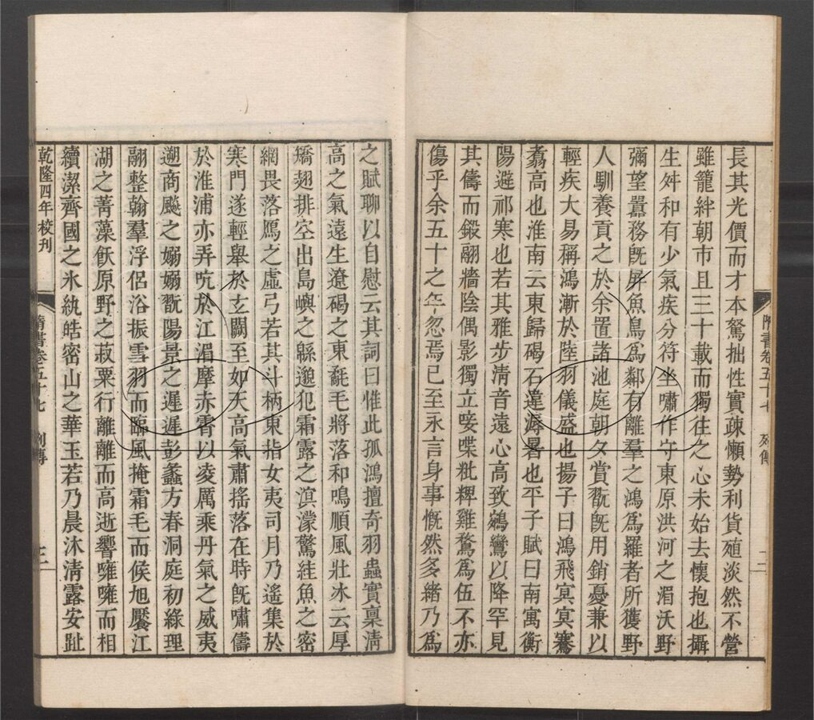 長其光價而才本駑拙性實疎嬾勢利貨殖淡然不營
雖籠絆朝市且三十載而獨往之心未始去懷抱也攝
生舛和有少氣疾分符坐嘯作守東原洪河之湄沃野
彌望囂務旣屏魚鳥爲鄰有離羣之鴻爲羅者所獲野
人馴養貢之於余置諸池庭朝夕賞翫旣用銷憂兼以
輕疾大易稱鴻漸於陸羽儀盛也揚子曰鴻飛冥冥騫
翥高也淮南云東歸碣石違溽暑也平子賦曰南寓衡
陽避祁寒也若其雅步清音遠心高致鵷鸞以降罕見
其儔而鎩翮牆陰偶影獨立唼喋粃粺雞鶩爲伍不亦
傷乎余五十之年忽焉已至永言身事慨然多緒乃爲
之賦聊以自慰云其詞曰惟此孤鴻擅奇羽蟲實稟清
高之氣遠生遼碣之東氄毛將落和鳴順風壯冰云厚
矯翅排空出島嶼之緜邈犯霜露之溟濛驚絓魚之密
網畏落鴈之虛弓若其斗柄東指女夷司月乃遙集於
寒門遂輕舉於玄闕至如天高氣肅搖落在時旣嘯儔
於淮浦亦弄吭於江湄摩赤霄以凌厲乘丹氣之威夷
遡商飈之嫋嫋翫陽景之遲遲彭蠡方春洞庭初綠理
翮整翰羣浮侶浴振雪羽而臨風掩霜毛而候旭饜江
湖之菁藻飫原野之菽粟行離離而高逝響噰噰而相
續潔齊國之氷紈皓密山之華玉若乃晨沐清露安趾
乾隆四年校刊
隋書卷五十七 列傳